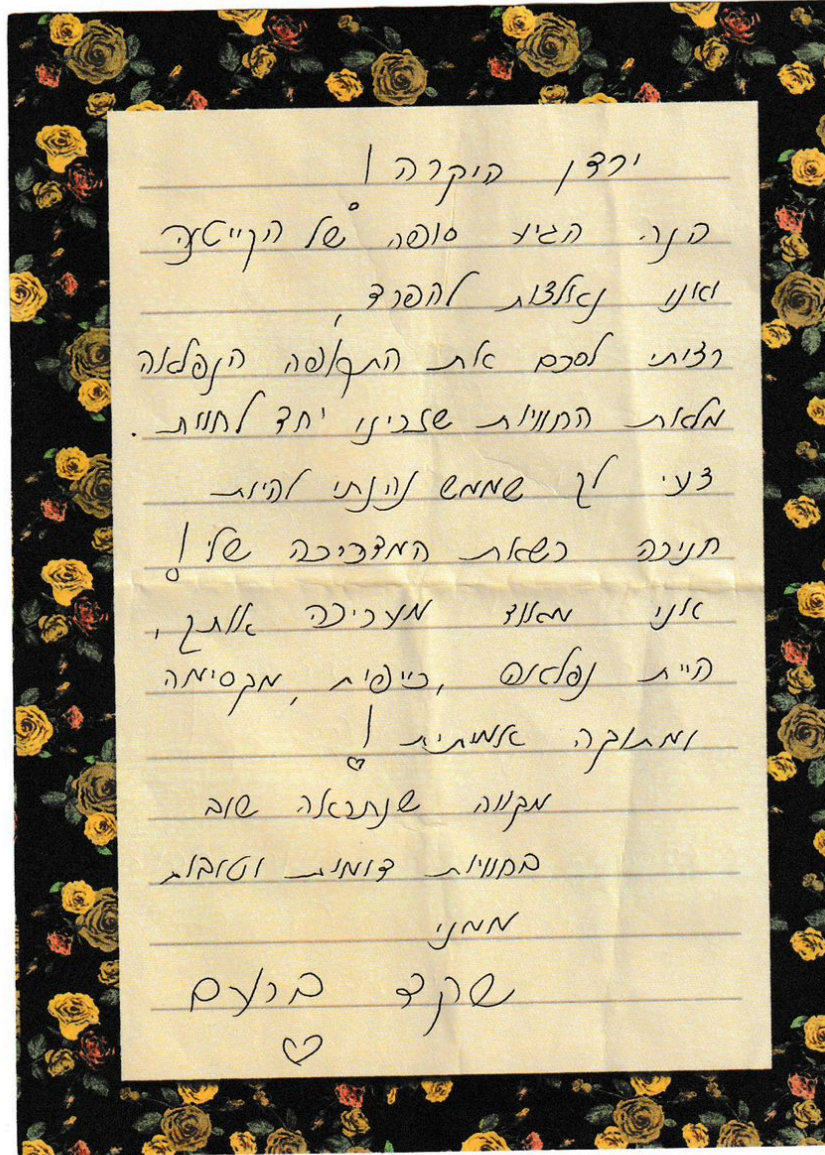 ירדן היקרה!
הנה הגיע סופה של הקייטנה
ואנו נאלצות להפרד,
רציתי לסכם את התקופה הנפלאה
מלאת החוויות שזכינו יחד לחוות.
דעי לך שממש נהנתי להיות
חניכה כשאת המדריכה שלי!
אני מאוד מעריכה אותך,
היית נפלאה, כייפית, מקסימה
ומתוקה אמיתית!
מקווה שנתראה שוב
בחוויות דומות וטובות
ממני
שקד ברעם